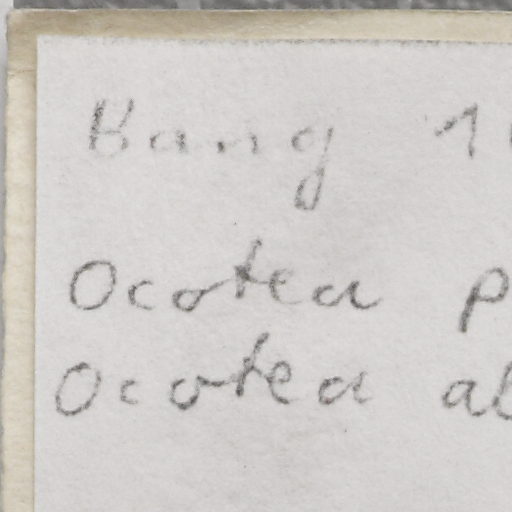 Bang 1
Ocotea p
Ocotea al